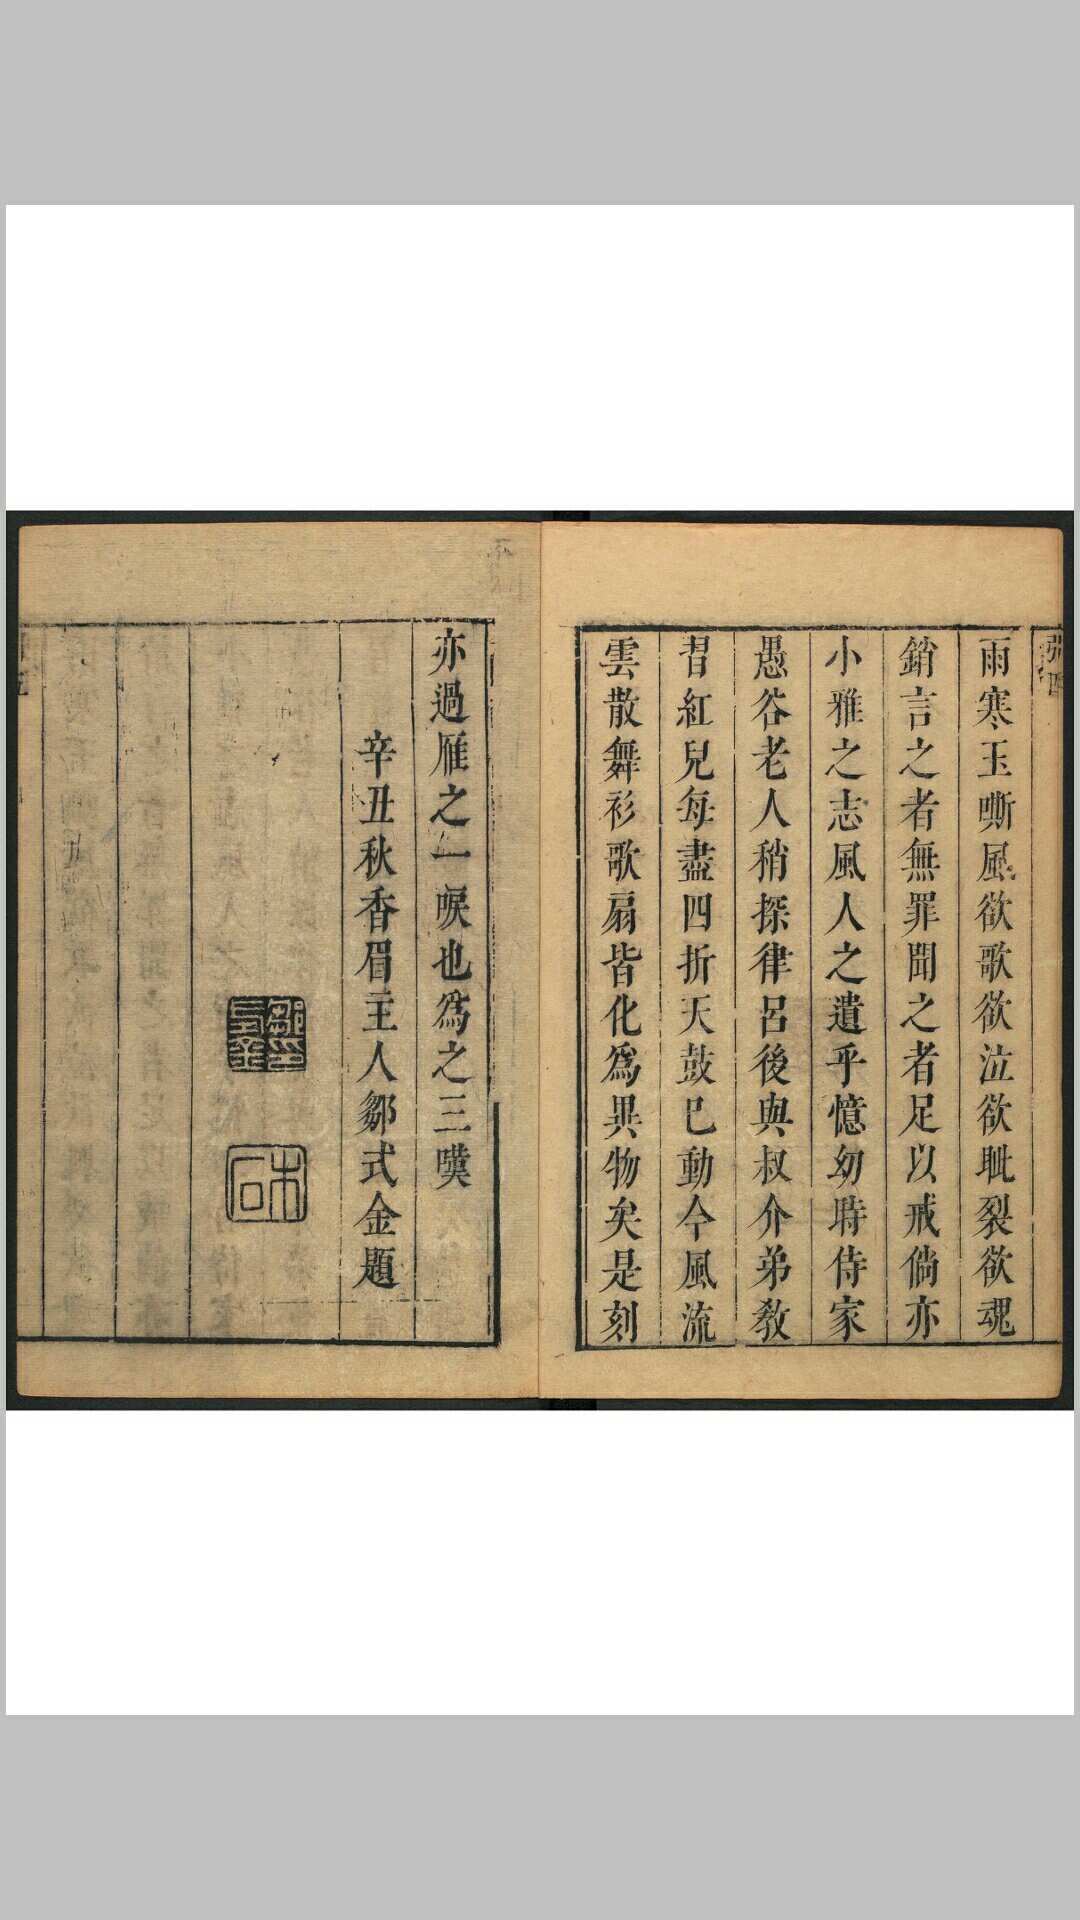 雨寒玉嘶風欲歌欲泣欲眦裂欲魂
銷言之者無罪聞之者足以戒倘亦
小雅之志風人之遺乎憶幼時侍家
愚谷老人稍探律呂後與叔介弟教
習紅兒每盡四折天鼓已動今風流
雲散舞衫歌扇皆化爲異物矣是刻
亦過雁之一唳也爲之三嘆
辛丑秋香眉主人鄒式金題